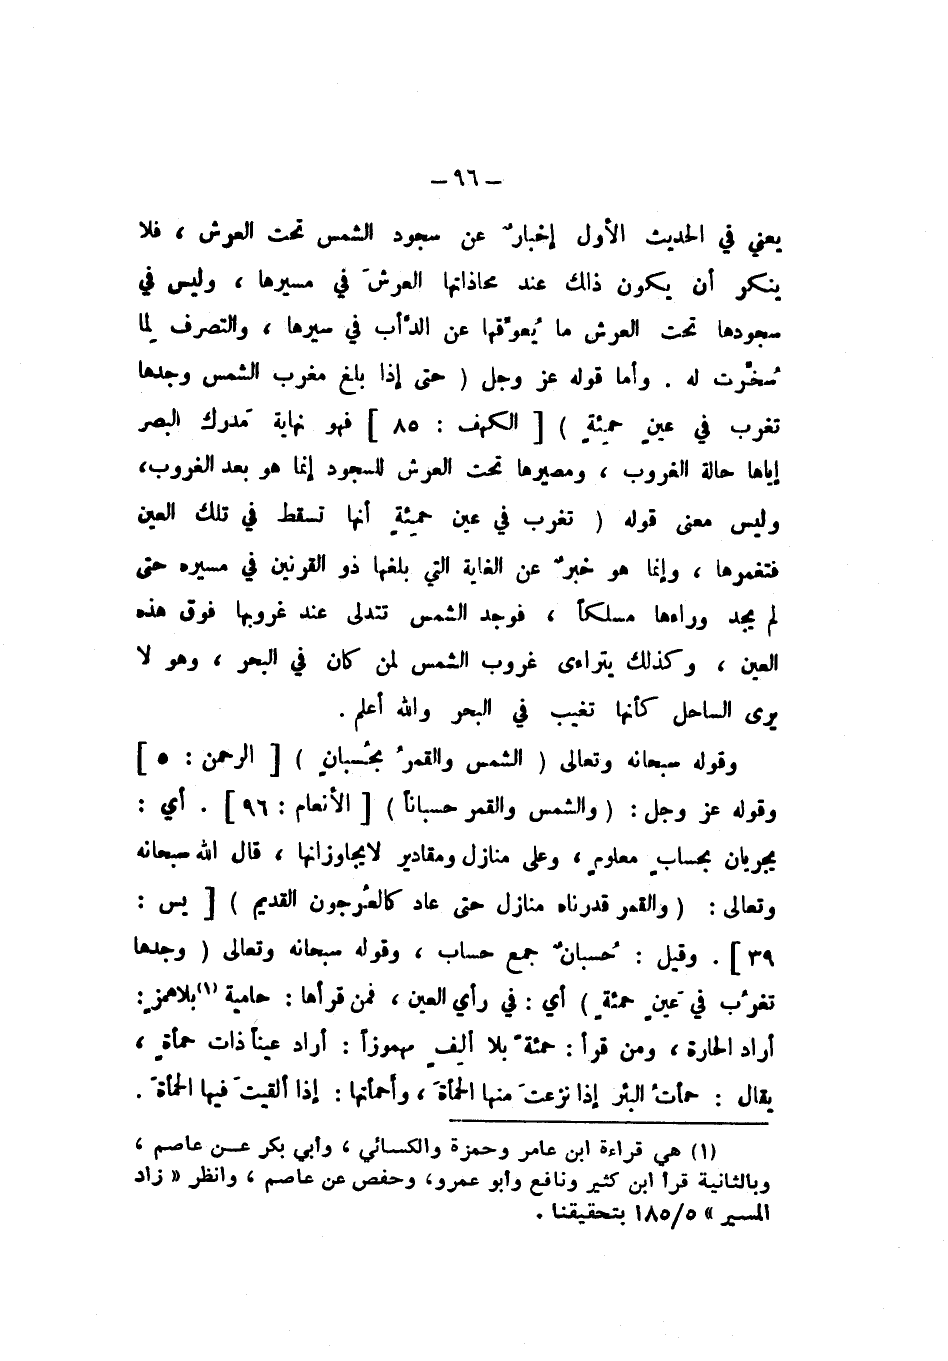 – ٩٦ –
يعني في الحديث الأول إخبارٌ عن سجود الشمس تحت العرش ، فلا
ينكر أن يكون ذلك عند محاذاتها العرشَ في مسيرها ، وليس في
سجودها تحت العرش ما يُعوِّقها عن الدَّأب في سيرها ، والتصرف لِما
سُخِّرت له . وأما قوله عز وجل ( حتى إذا بلغ مغرب الشمس وجدها
تغرب في عينٍ حمِئةٍ ) [ الكهف : ٨٥ ] فهو نهاية مَدرك البصر
إياها حالة الغروب ، ومصيرها تحت العرش للسجود إنما هو بعد الغروب،
وليس معنى قوله ( تغرب في عين حمِئةٍ أنها تسقط في تلك العين
فتغمرها ، وإنما هو خبرٌ عن الغاية التي بلغها ذو القرنين في مسيره حتى
لم يجد وراءها مسلكاً ، فوجد الشمس تتدلى عند غروبها فوق هذه
العين ، وكذلك يتراءى غروب الشمس لمن كان في البحر ، وهو لا
يرى الساحل كأنها تغيب في البحر والله أعلم .
وقوله سبحانه وتعالى ( الشمس والقمرُ بحُسبانٍ ) [ الرحمن : ٥ ]
وقوله عز وجل : ( والشمس والقمر حسباناً ) [ الأنعام : ٩٦ ] . أي :
يجريان بحسابٍ معلومٍ ، وعلى منازل ومقادير لايجاوزانها ، قال الله سبحانه
وتعالى : ( والقمر قدرناه منازل حتى عاد كالعُرجون القديم ) [ يس :
٣٩ ] . وقيل : حُسبانٌ جمع حساب ، وقوله سبحانه وتعالى ( وجدها
تغرُب في عَينٍ حمئةٍ ) أي : في رأي العين ، فمن قرأها : حامية (١) بلاهمزٍ:
أراد الحارة ، ومن قرأ : حمئةً بلا ألِفٍ مهموزاً : أراد عيناً ذات حمأةٍ ،
يقال : حمأتُ البئر إذا نزعتَ منها الحمأةَ ، وأحمأتها : إذا ألقيتَ فيها الحمأةَ .
(١) هي قراءة ابن عامر وحمزة والكسائي ، وأبي بكر عــن عاصم ،
وبالثانية قرأ ابن كثير ونافع وأبو عمرو، وحفص عن عاصم ، وانظر « زاد
المسير » ١٨٥/٥ بتحقيقنا .